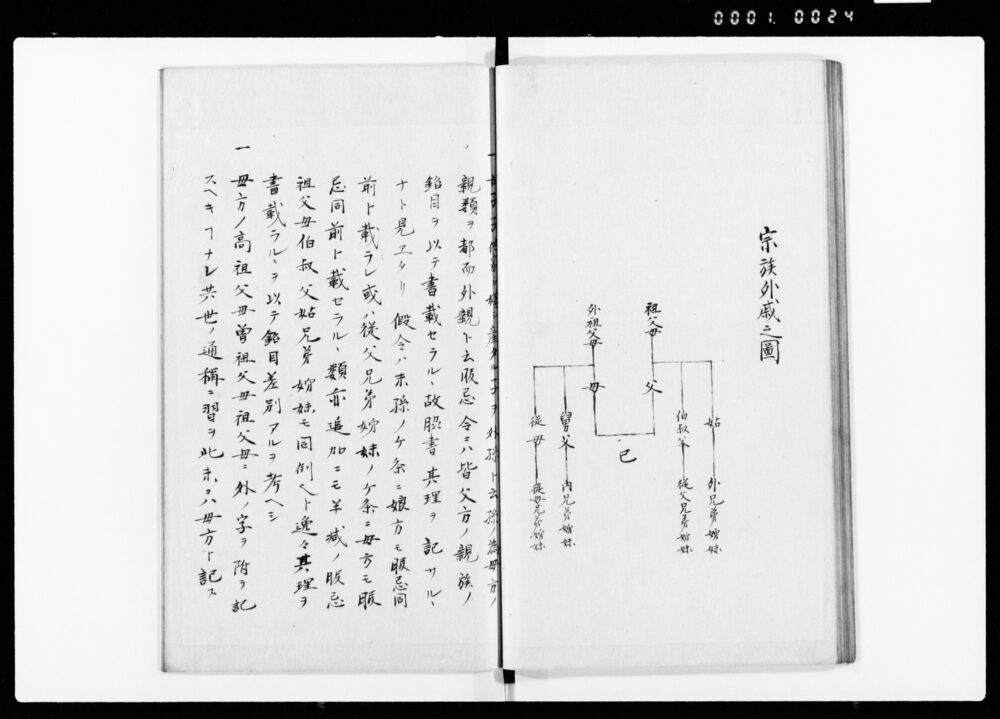 0001. 0024
宗族外戚之圖
祖父母
外祖父母
父
母
己
姑 外兄弟姉妹
伯叔父 従父兄弟姉妹
舅父 内兄弟姉妹
従母 従母兄弟姉妹
ヲ外孫ト云孫ノ為母方ノ
親類ヲ都而外親ト云服忌令ニハ皆父方ノ親族ノ
銘目ヲ以テ書載セラル、故脇書其理ヲ記サル、
ナト見エタリ假令ハ末孫ノケ条ニ娘方モ服忌同
前ト載ラレ或ハ従父兄弟姉妹ノケ条ニ母方モ服
忌同前ト載セラル、類亦追加ニモ半減ノ服忌
祖父母伯叔父姑兄弟姉妹モ同例ヘト逸々其理ヲ
書載ラル、ヲ以テ銘目差別アルヲ考ヘシ
一 母方ノ高祖父母曽祖父母祖父母ニ外ノ字ヲ附テ記
スヘキヿナレ共世ノ通稱ニ習ヲ此末ニハ母方ト記ス